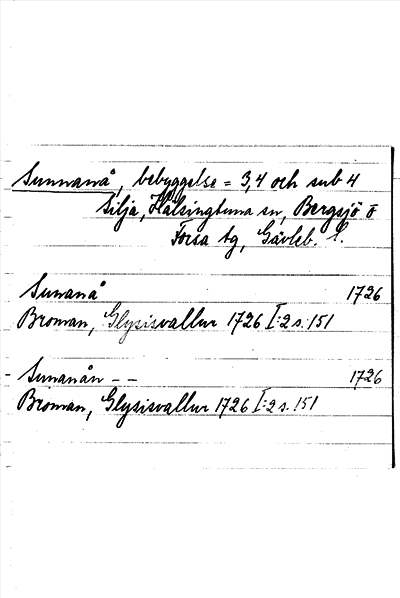 Sunnanå, bebyggelse = 3,4 och sub 4
Silja, Hälsingtuna sn, Bergsjö o
Forsa tg, Gävleb. l.
Sunanå 1726
Broman, Glysisvallur 1726 I:2 s. 151
Sunanån - - 1726
Broman, Glysisvallur 1726 I:2 s. 151